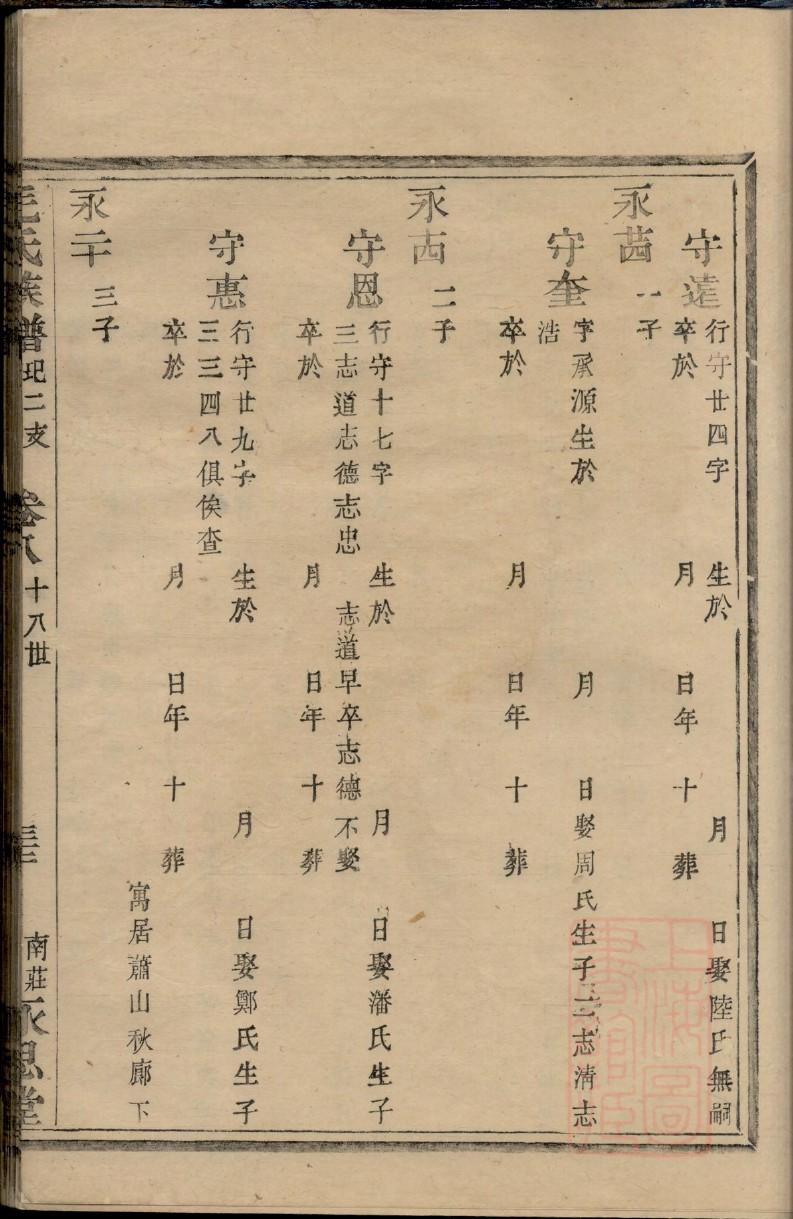 守遠
行守廿四字 生於 月 日娶陸氏無嗣
卒於 月 日年 十 葬
永茜 一子
守奎
字承源生於 月 日娶周氏生子二志清志
浩
卒於 月 日年 十 葬
永西 二子
守恩
行守十七字 生於 月 日娶潘氏生子
三志道志德志忠 志道早卒志德不娶
卒於 月 日年 十 葬
守惠
行守廿九字 生於 月 日娶鄭氏生子
三三四八俱俟查
卒於 月 日年 十 葬
寓居蕭山秋廊下
永二十 三子
毛氏族譜 玘二支 卷八 十八世 南莊永思堂
上海圖書館藏